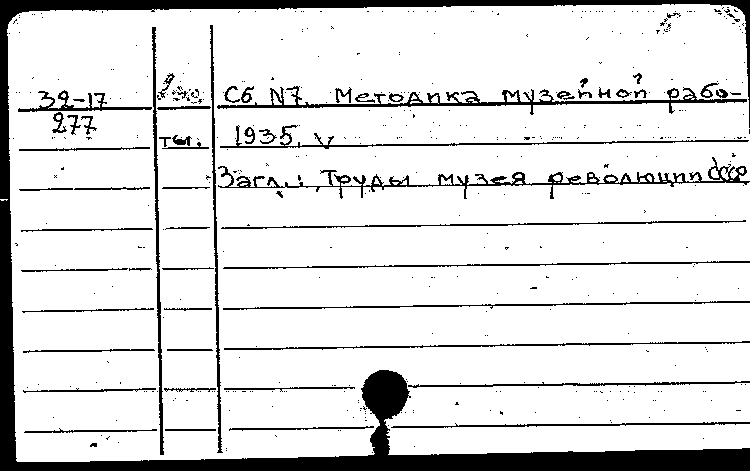 32-17 Сб. N7. Методика музейной рабо-
277 ты. 1935. V
Загл.: Труды музея революции СССР